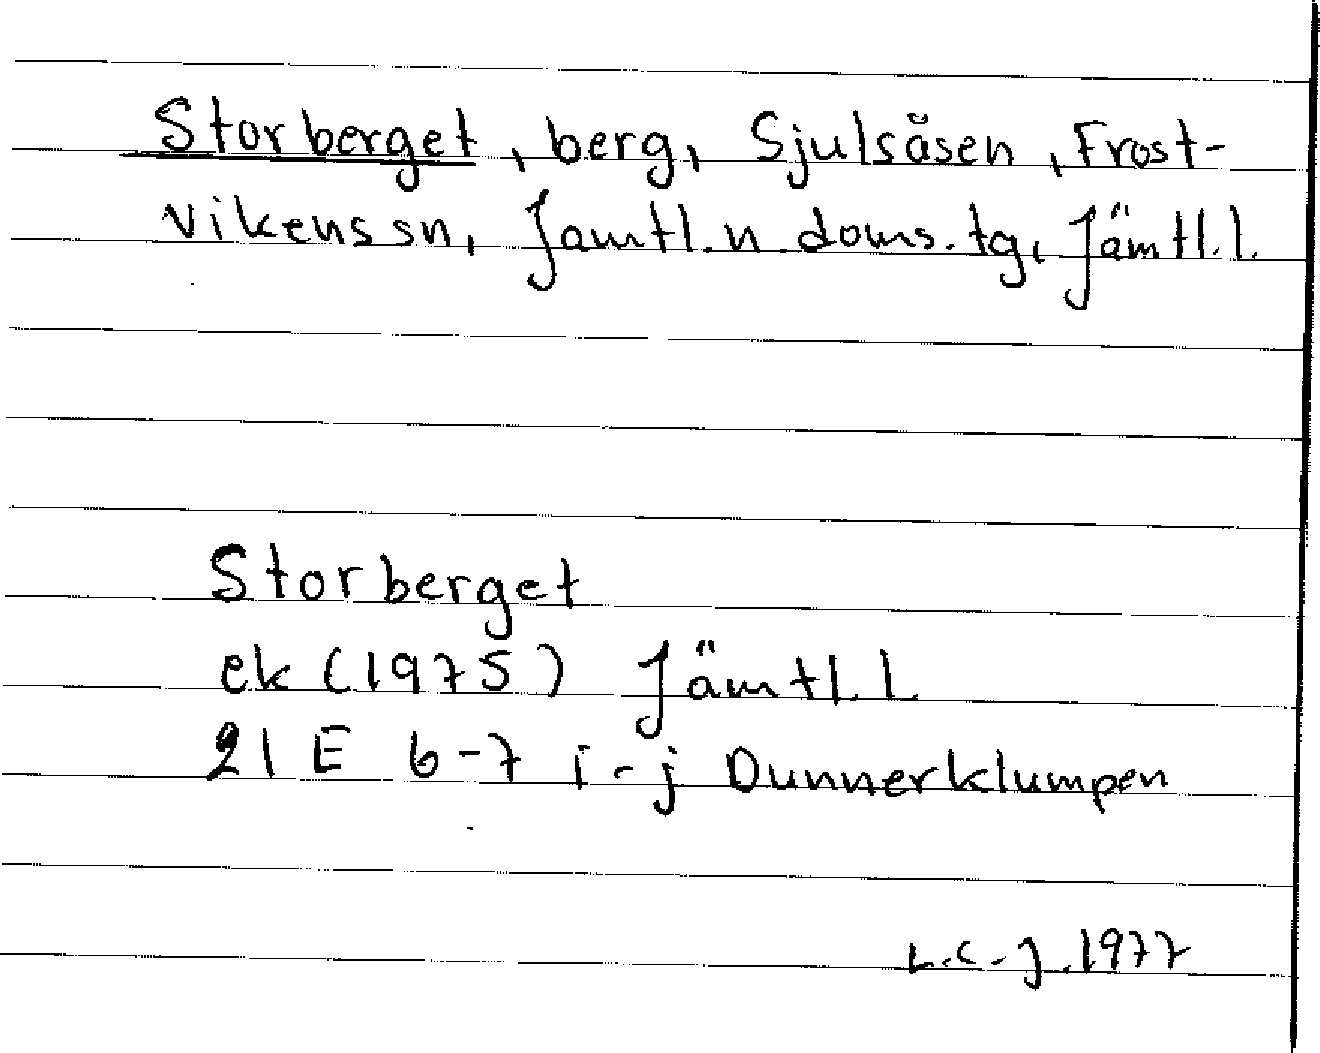 Storberget, berg, Sjulsåsen, Frost-
vikens sn, Jamtl. n doms. tg, Jämtl. l.
Storberget
ek (1975) Jämtl. l
21 E 6-7 i-j Dunnerklumpen
L.C-J. 1977